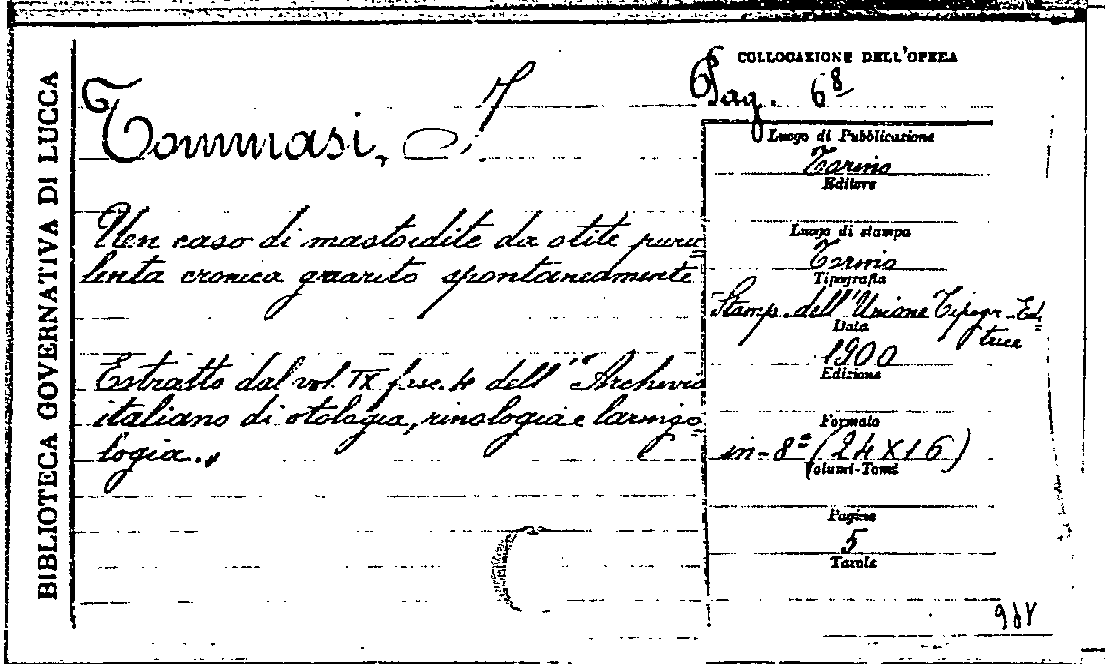 BIBLIOTECA GOVERNATIVA DI LUCCA
Tommasi, J
Un caso di mastoidite da otite puru=
lenta cronica guarito spontaneamente
Estratto dal vol. IX fasc. 4 dell' "Archivio
italiano di otologia, rinologia e laringo=
logia."
COLLOCAZIONE DELL'OPERA
Pag. 68
Luogo di Pubblicazione
Torino
Editore
Luogo di stampa
Torino
Tipografia
Stamp. dell'Unione Tipogr-Ed.=
trice
Data
1900
Edizione
Formato
in-8º (24 X 16)
Volumi-Tomi
Pagine
5
Tavole